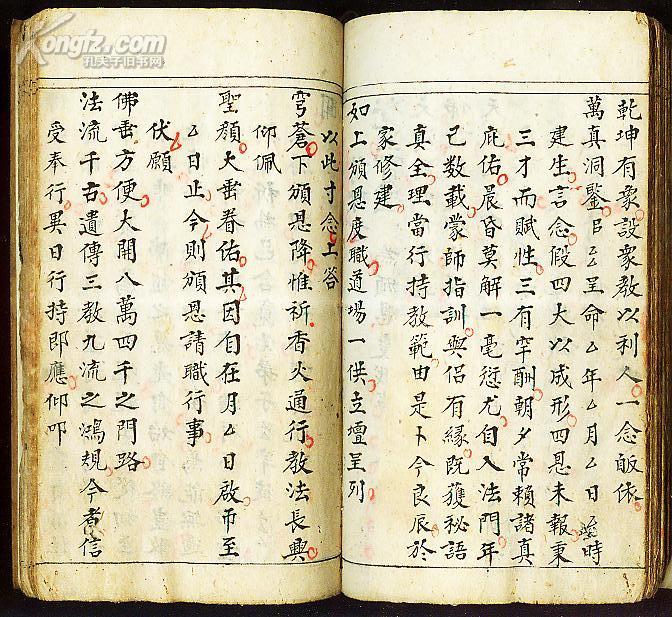 Kongfz.com
孔夫子旧书网
乾坤有象設衆教以利人一念皈依
萬真洞鑒臣厶呈命厶年厶月厶日時
建生言念假四大以成形四恩未報秉
三才而賦性三有罕酬朝夕常賴諸真
庇佑晨昏莫解一毫愆尤自入法門年
已数載蒙師指訓與侣有緣既獲秘語
真全理當行持教範由是卜今良辰於
家修建
如上頒恩度職道場一供立壇呈列
以此寸念上答
穹蒼下頒恩降惟祈香火通行教法長興
仰佩
聖顔大垂眷佑其因旬在月厶日啟帀至
厶日止今則頒恩請職行事
伏願
佛垂方便大開八萬四千之門路
法流千古遺傳三教九流之鴻規今者信
受奉行異日行持即應仰叩